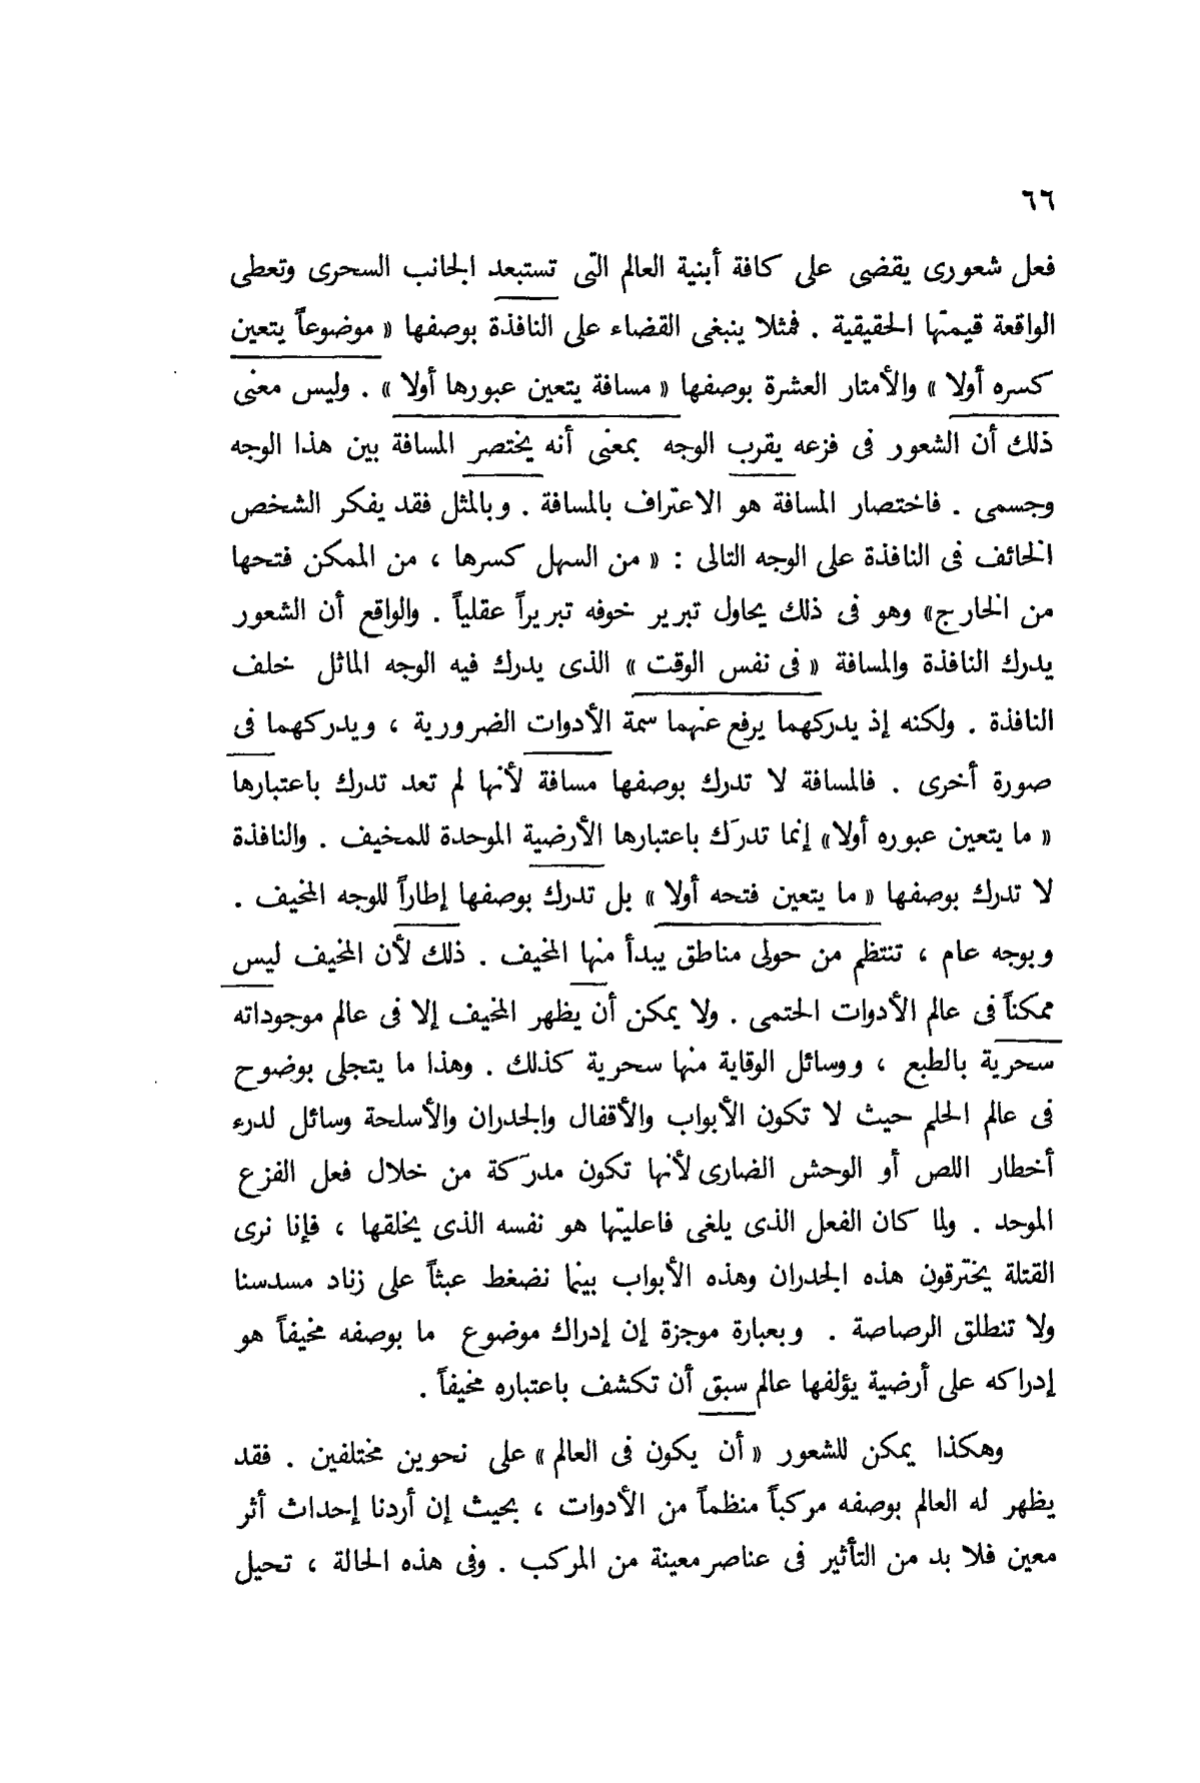 ٦٦
فعل شعورى يقضى على كافة أبنية العالم التى تستبعد الجانب السحرى وتعطى
الواقعة قيمتها الحقيقية . فمثلا ينبغى القضاء على النافذة بوصفها « موضوعاً يتعين
كسره أولا » والأمتار العشرة بوصفها « مسافة يتعين عبورها أولا » . وليس معنى
ذلك أن الشعور فى فزعه يقرب الوجه بمعنى أنه يختصر المسافة بين هذا الوجه
وجسمى . فاختصار المسافة هو الاعتراف بالمسافة . وبالمثل فقد يفكر الشخص
الخائف فى النافذة على الوجه التالى : « من السهل كسرها ، من الممكن فتحها
من الخارج» وهو فى ذلك يحاول تبرير خوفه تبريراً عقلياً . والواقع أن الشعور
يدرك النافذة والمسافة « فى نفس الوقت » الذى يدرك فيه الوجه الماثل خلف
النافذة . ولكنه إذ يدركهما يرفع عنهما سمة الأدوات الضرورية ، ويدركهما فى
صورة أخرى . فالمسافة لا تدرك بوصفها مسافة لأنها لم تعد تدرك باعتبارها
« ما يتعين عبوره أولا» إنما تدرَك باعتبارها الأرضية الموحدة للمخيف . والنافذة
لا تدرك بوصفها « ما يتعين فتحه أولا » بل تدرك بوصفها إطاراً للوجه المخيف .
وبوجه عام ، تنتظم من حولى مناطق يبدأ منها المخيف . ذلك لأن المخيف ليس
ممكناً فى عالم الأدوات الحتمى . ولا يمكن أن يظهر المخيف إلا فى عالم موجوداته
سحرية بالطبع ، ووسائل الوقاية منها سحرية كذلك . وهذا ما يتجلى بوضوح
فى عالم الحلم حيث لا تكون الأبواب والأقفال والجدران والأسلحة وسائل لدرء
أخطار اللص أو الوحش الضارى لأنها تكون مدرَكة من خلال فعل الفزع
الموحد . ولما كان الفعل الذى يلغى فاعليتها هو نفسه الذى يخلقها ، فإنا نرى
القتلة يخترقون هذه الجدران وهذه الأبواب بينما نضغط عبثاً على زناد مسدسنا
ولا تنطلق الرصاصة . وبعبارة موجزة إن إدراك موضوع ما بوصفه مخيفاً هو
إدراكه على أرضية يؤلفها عالم سبق أن تكشف باعتباره مخيفاً .
وهكذا يمكن للشعور « أن يكون فى العالم » على نحوين مختلفين . فقد
يظهر له العالم بوصفه مركباً منظماً من الأدوات ، بحيث إن أردنا إحداث أثر
معين فلا بد من التأثير فى عناصر معينة من المركب . وفى هذه الحالة ، تحيل